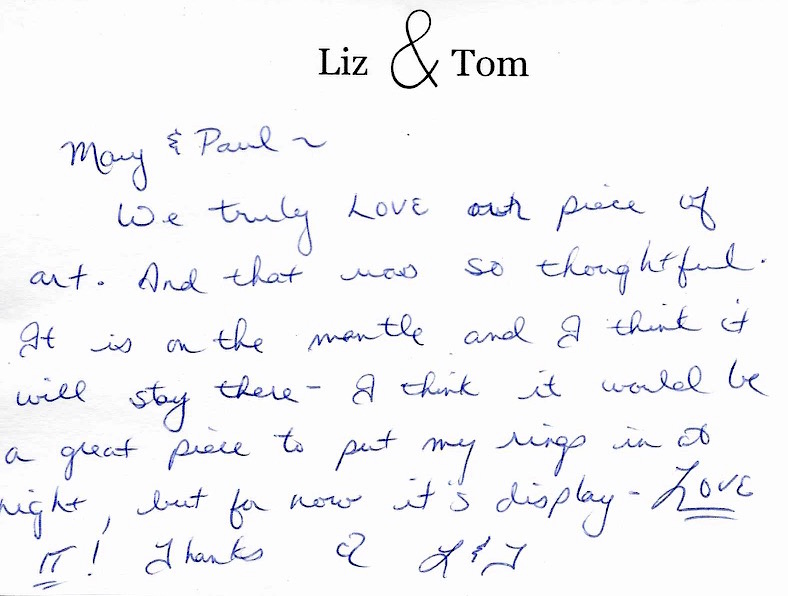 Liz & Tom
Mary & Paul ~
We truly LOVE our piece of
art. And that was so thoughtful.
It is on the mantle and I think it
will stay there - I think it would be
a great piece to put my rings in at
night, but for now it's display - LOVE
IT! Thanks L & T